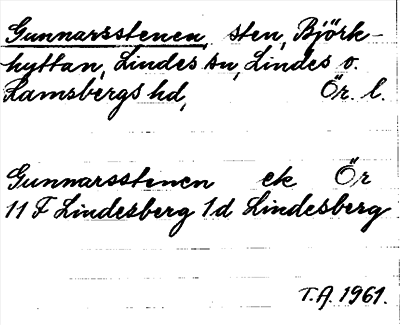 Gunnarsstenen, sten, Björk-
hyttan, Lindes sn, Lindes o.
Ramsbergs hd, Ör. l.
Gunnarsstenen ek Ör
11 F Lindesberg 1d Lindesberg
T.A. 1961.